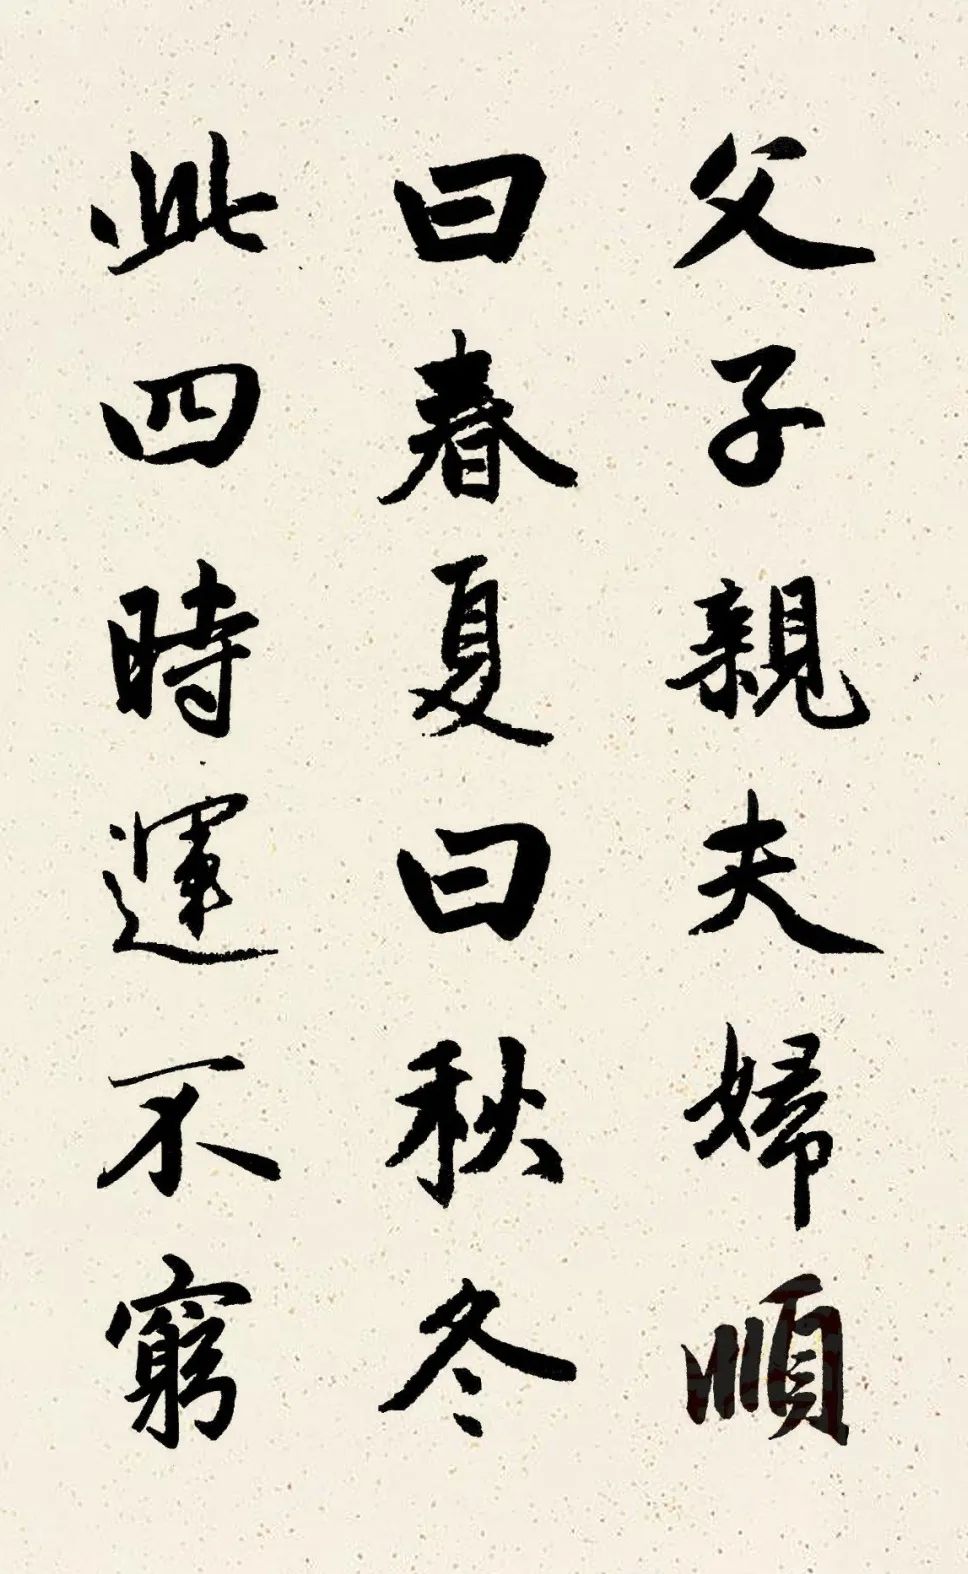 父子親夫婦順
曰春夏曰秋冬
此四時運不窮